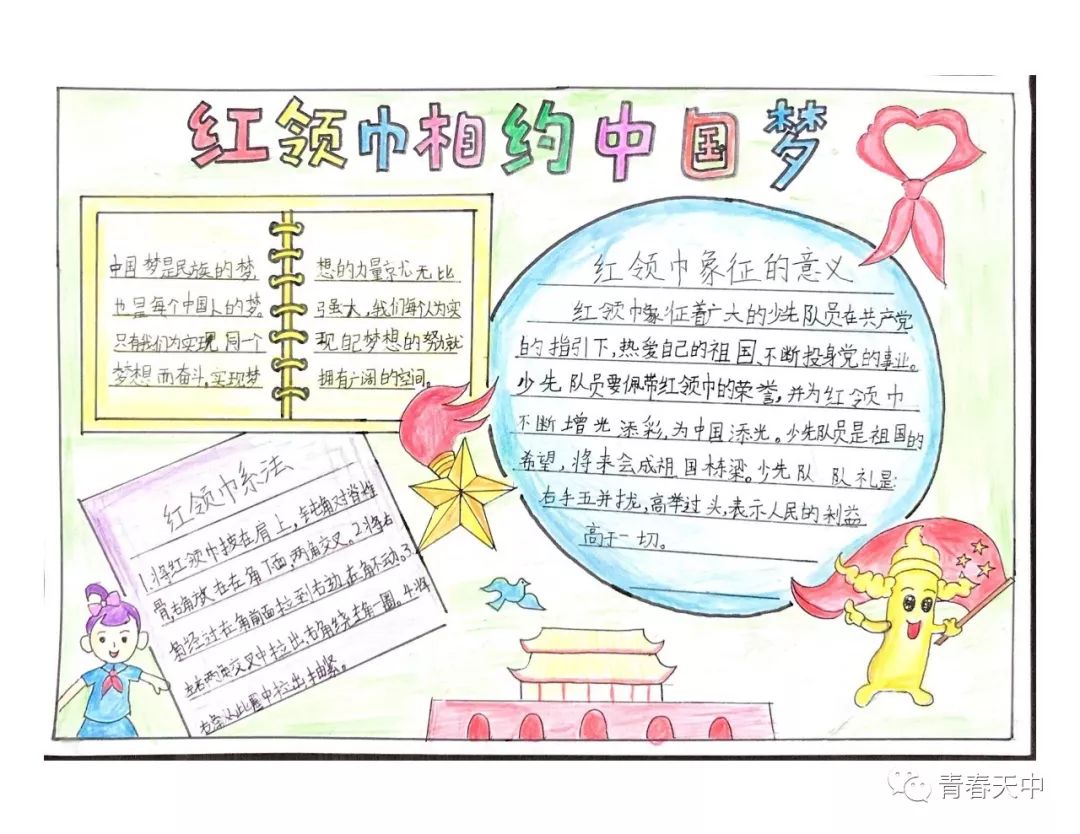 红领巾相约中国梦
中国梦是民族的梦,
也是每个中国人的梦。
只有我们为实现同一个
梦想而奋斗,实现梦
想的力量才无比
强大,我们每个人为实
现自己梦想的努力就
拥有广阔的空间。
红领巾象征的意义
红领巾象征着广大的少先队员在共产党
的指引下,热爱自己的祖国、不断投身党的事业。
少先队员要佩带红领巾的荣誉,并为红领巾
不断增光添彩,为中国添光。少先队员是祖国的
希望,将来会成祖国栋梁。少先队队礼是:
右手五并拢,高举过头,表示人民的利益
高于一切。
红领巾系法
1.将红领巾披在肩上,钝角对脊椎
骨,右角放在左角下面,两角交叉。2.将右
角经过左角前面拉到右边,左角不动。3.
左右两角交叉中拉出,右角绕左角一圈。4.将
右角从此圈中拉出,抽紧。
青春天中